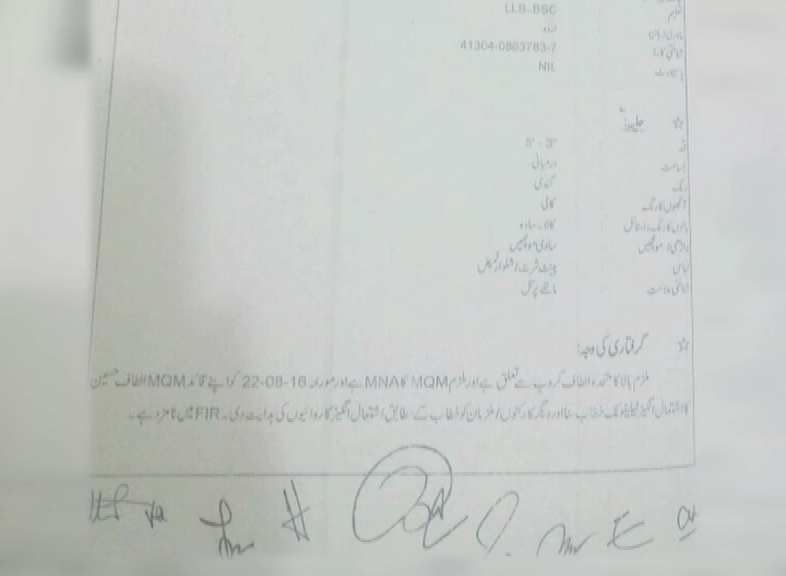 تعلیم LLB-BSC
مادری زبان اردو
شناختی کارڈ 41304-0863783-7
پاسپورٹ NIL
☆ حلیہ:
قد 5' - 3"
جسامت درمیانی
رنگ گندمی
آنکھوں کا رنگ کالی
بالوں کا رنگ و اسٹائل کالا۔ سادہ
داڑھی / مونچھیں سادی مونچھیں
لباس پینٹ شرٹ / شلوار قمیض
شناختی علامت ماتھے پر تل
☆ گرفتاری کی وجہ:
ملزم بالا کا متحدہ الطاف گروپ سے تعلق ہے اور ملزم MQM کا MNA ہے اور مورخہ 22-08-16 کو اپنے قائد MQM الطاف حسین
کا اشتعال انگیز ٹیلیفونک خطاب سنا اور دیگر کارکنوں / ملزمان کو خطاب کے مطابق اشتعال انگیز کاروائیوں کی ہدایت دی۔ FIR میں نامزد ہے۔